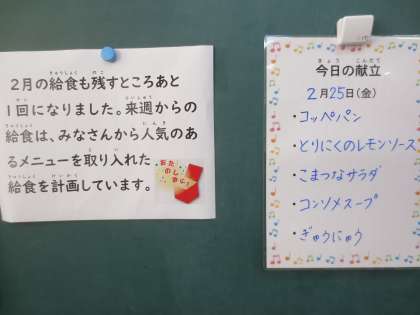 2月の給食も残すところあと
1回になりました。来週からの
給食は、みなさんから人気のあ
るメニューを取り入れた
給食を計画しています。
おた
のし
みに!
今日の献立
2月25日(金)
・コッペパン
・とりにくのレモンソース
・こまつなサラダ
・コンソメスープ
・ぎゅうにゅう